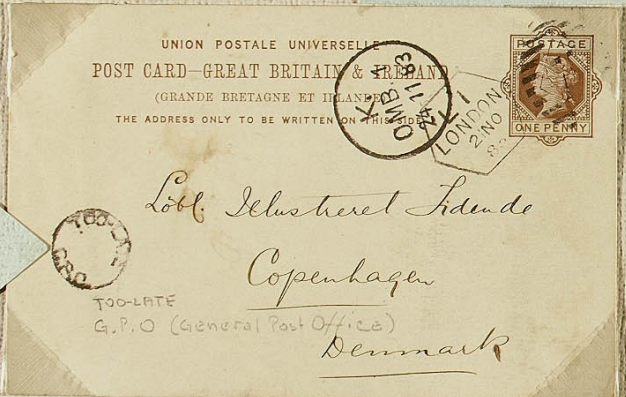 UNION POSTALE UNIVERSELLE
POST CARD—GREAT BRITAIN & IRELAND
(GRANDE BRETAGNE ET IRLANDE)
THE ADDRESS ONLY TO BE WRITTEN ON THIS SIDE
POSTAGE
ONE PENNY
K.
OMB. 4
24 11 83
L 1
LONDON
21 NO
Löbl. Illustreret Tidende
Copenhagen
Denmark
TOO-LATE
G.P.O
TOO-LATE
G.P.O (General Post Office)